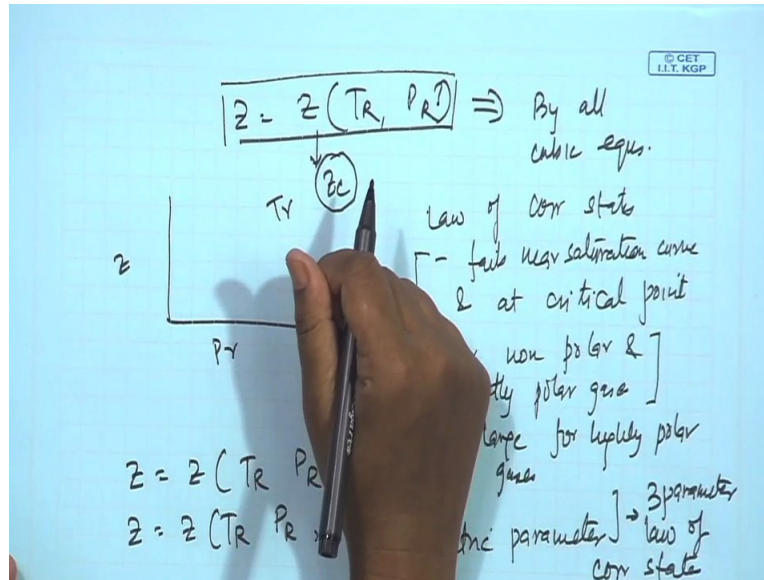 © CET
I.I.T. KGP
Z = Z (TR, PR) ⇒ By all
cubic eqns.
Zc
Tr
Z
Pr
Law of corr states
- fails near saturation curve
& at critical point
non polar &
polar gase
large for highly polar
gases
Z = Z ( TR PR
Z = Z (TR PR, parameter ] → 3 parameter
law of
corr state